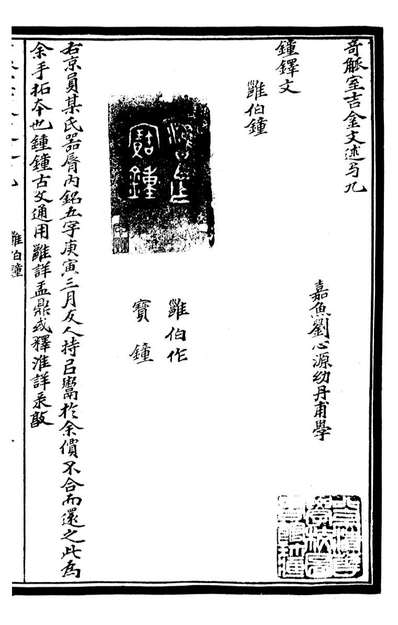 奇觚室吉金文述弓九
嘉魚劉心源幼丹甫學
鐘鐸文
雝伯鐘
雝伯作
寶鐘
右京員某氏器脣內銘五字庚寅三月友人持㠯鬻於余價不合而還之此爲
余手拓本也鍾鐘古文通用雝詳盂鼎或釋淮詳彔敦
雝伯鐘